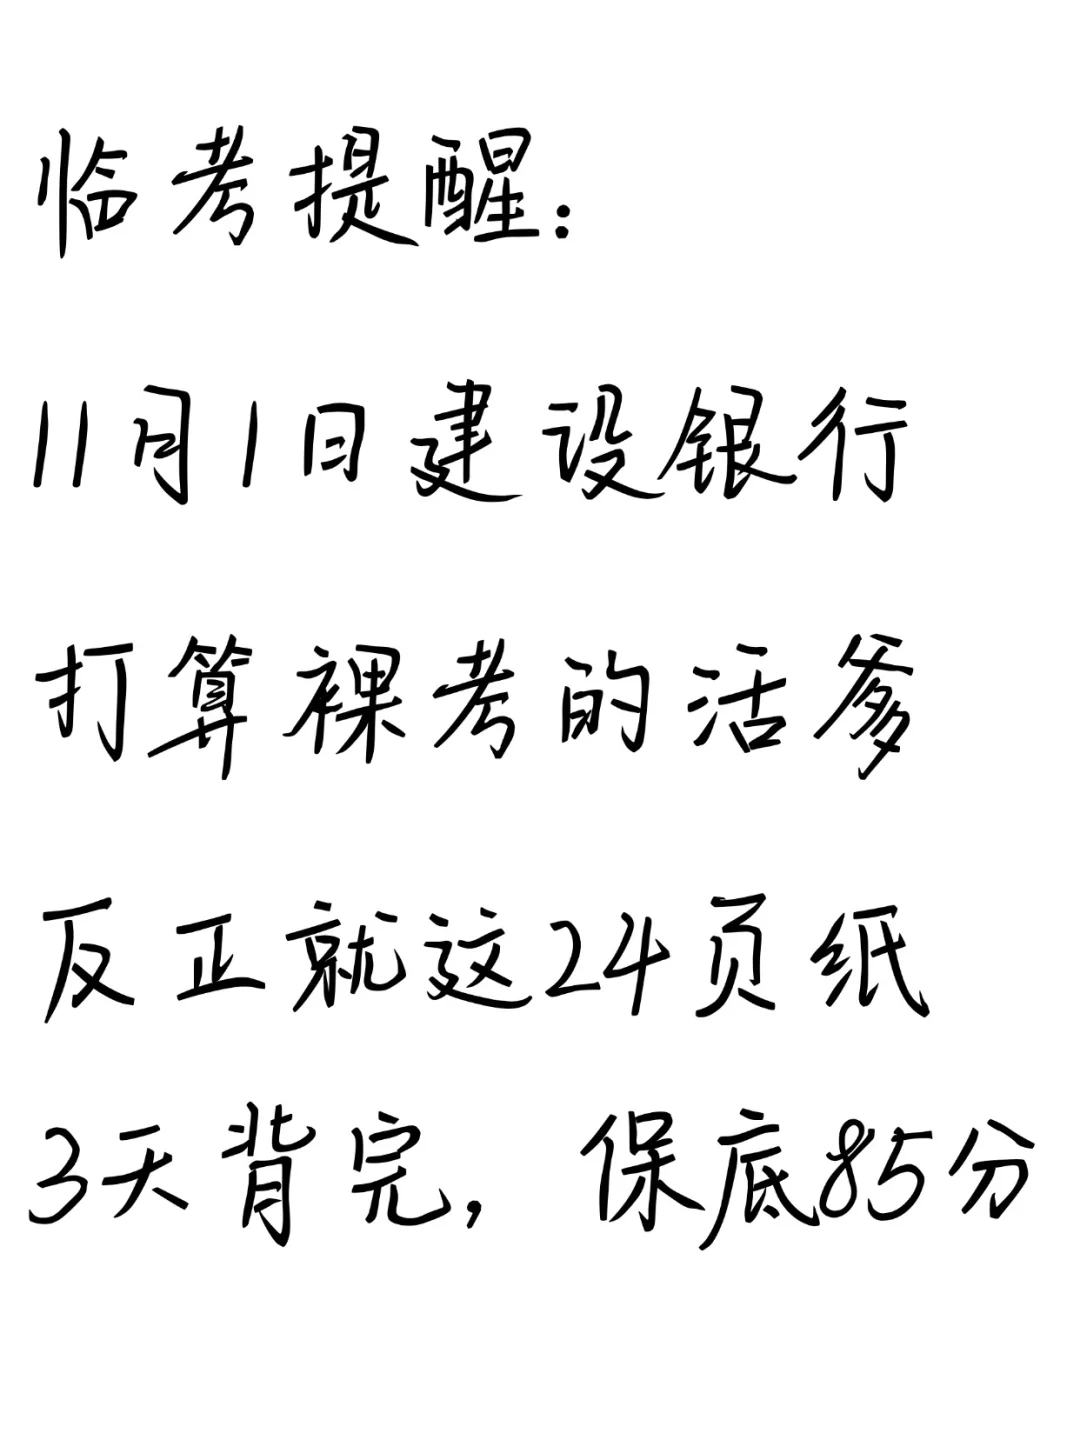 临考提醒：
11月1日建设银行
打算裸考的活爹
反正就这24页纸
3天背完，保底85分